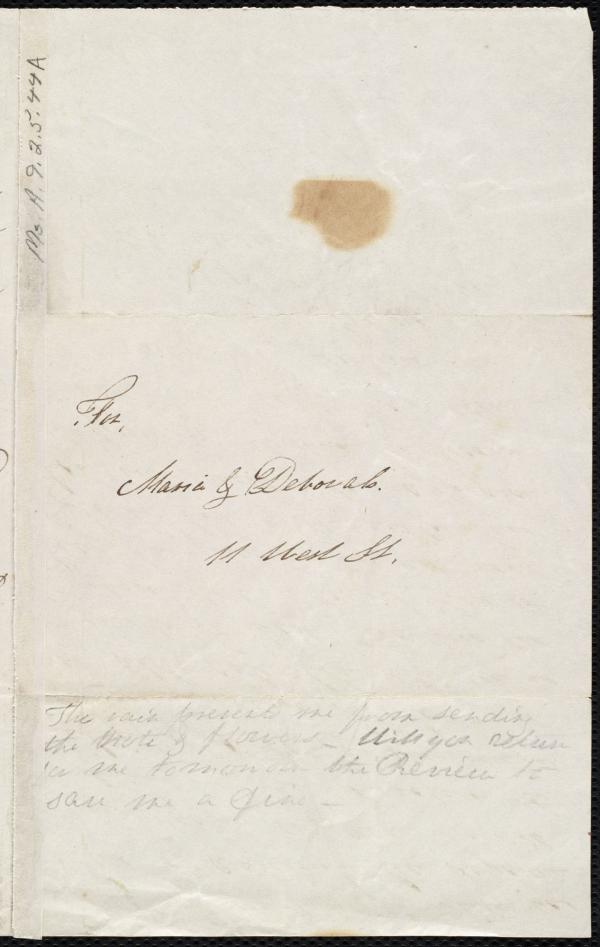 Ms. A. 9. 2. 5. 44A
For,
Maria & Deborah.
11 West St.
The rain prevents me from sending
the Note & flowers – Will you return
to me tomorrow the Review to
save me a fine –